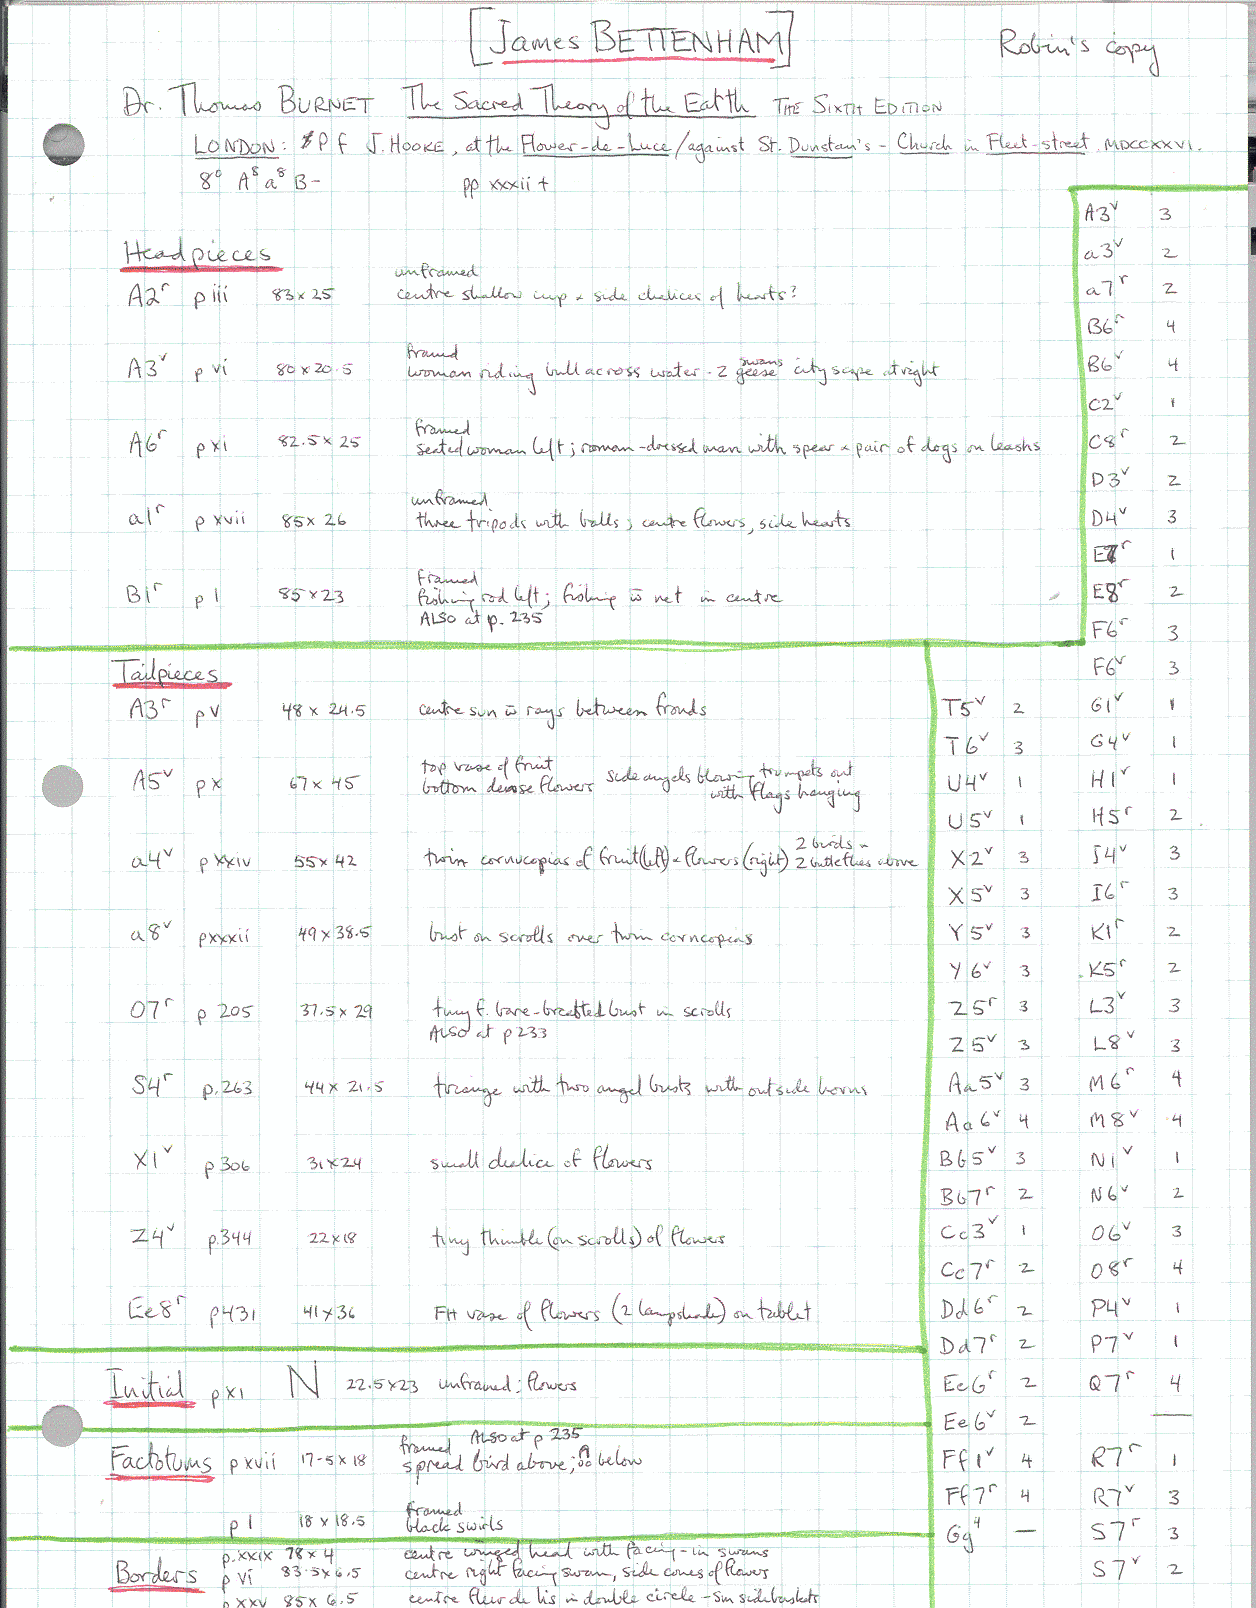 [James BETTENHAM]
Robin's copy
Dr. Thomas BURNET The Sacred Theory of the Earth THE SIXTH EDITION
LONDON: P f J. HOOKE, at the Flower-de-Luce/against St. Dunstan's-Church in Fleet-street, MDCCXXVI.
8° A⁸ a⁸ B- pp xxxii +
Headpieces
A2ʳ p iii 83 x 25 unframed
centre shallow cup & side chalices of hearts?
A3ᵛ p vi 80 x 20.5 framed
woman riding bull across water - 2 geese swans city scape at right
A6ʳ p xi 82.5 x 25 framed
seated woman left; roman-dressed man with spear & pair of dogs on leashs
a1ʳ p xvii 85 x 26 unframed
three tripods with balls; centre flowers, side hearts
B1ʳ p 1 85 x 23 Framed
fishing rod left; fishing w̄ net in centre
ALSO at p. 235
Tailpieces
A3ʳ p v 48 x 24.5 centre sun w̄ rays between fronds
A5ᵛ p x 67 x 45 top vase of fruit
bottom dense flowers side angels blowing trumpets out
with flags hanging
a4ᵛ p xxiv 55 x 42 twin cornucopias of fruit (left) & flowers (right) 2 birds &
2 butterflies above
a8ᵛ p xxxii 49 x 38.5 bust on scrolls over twin corncopias
O7ʳ p 205 37.5 x 29 tiny f. bare-breasted bust in scrolls
ALSO at p 233
S4ʳ p. 263 44 x 21.5 triange with two angel busts with outside horns
X1ᵛ p 306 31 x 24 small chalice of flowers
Z4ᵛ p. 344 22 x 18 tiny thimble (on scrolls) of flowers
Ee8ʳ p 431 41 x 36 FH vase of flowers (2 lampshade) on tablet
Initial p xi N 22.5 x 23 unframed: flowers
Factotums p xvii 17.5 x 18 framed ALSO at p 235
spread bird above; below
p 1 18 x 18.5 framed
black swirls
Borders p. xxix 78 x 4 centre winged head with facing-in swans
p vi 83.5 x 6.5 centre right facing swan, side cones of flowers
p xxv 85 x 6.5 centre fleur de lis in double circle - sm side baskets
T5ᵛ 2
T6ᵛ 3
U4ᵛ 1
U5ᵛ 1
X2ᵛ 3
X5ᵛ 3
Y5ᵛ 3
Y6ᵛ 3
Z5ʳ 3
Z5ᵛ 3
Aa5ᵛ 3
Aa6ᵛ 4
Bb5ᵛ 3
Bb7ʳ 2
Cc3ᵛ 1
Cc7ʳ 2
Dd6ʳ 2
Dd7ʳ 2
Ee6ʳ 2
Ee6ᵛ 2
Ff1ᵛ 4
Ff7ʳ 4
Gg⁴ —
A3ᵛ 3
a3ᵛ 2
a7ʳ 2
B6ʳ 4
B6ᵛ 4
C2ᵛ 1
C8ʳ 2
D3ᵛ 2
D4ᵛ 3
E7ʳ 1
E8ʳ 2
F6ʳ 3
F6ᵛ 3
G1ᵛ 1
G4ᵛ 1
H1ʳ 1
H5ʳ 2
I4ᵛ 3
I6ʳ 3
K1ʳ 2
K5ʳ 2
L3ᵛ 3
L8ᵛ 3
M6ʳ 4
M8ᵛ 4
N1ᵛ 1
N6ᵛ 2
O6ᵛ 3
O8ʳ 4
P4ᵛ 1
P7ᵛ 1
Q7ʳ 4
—
R7ʳ 1
R7ᵛ 3
S7ʳ 3
S7ᵛ 2